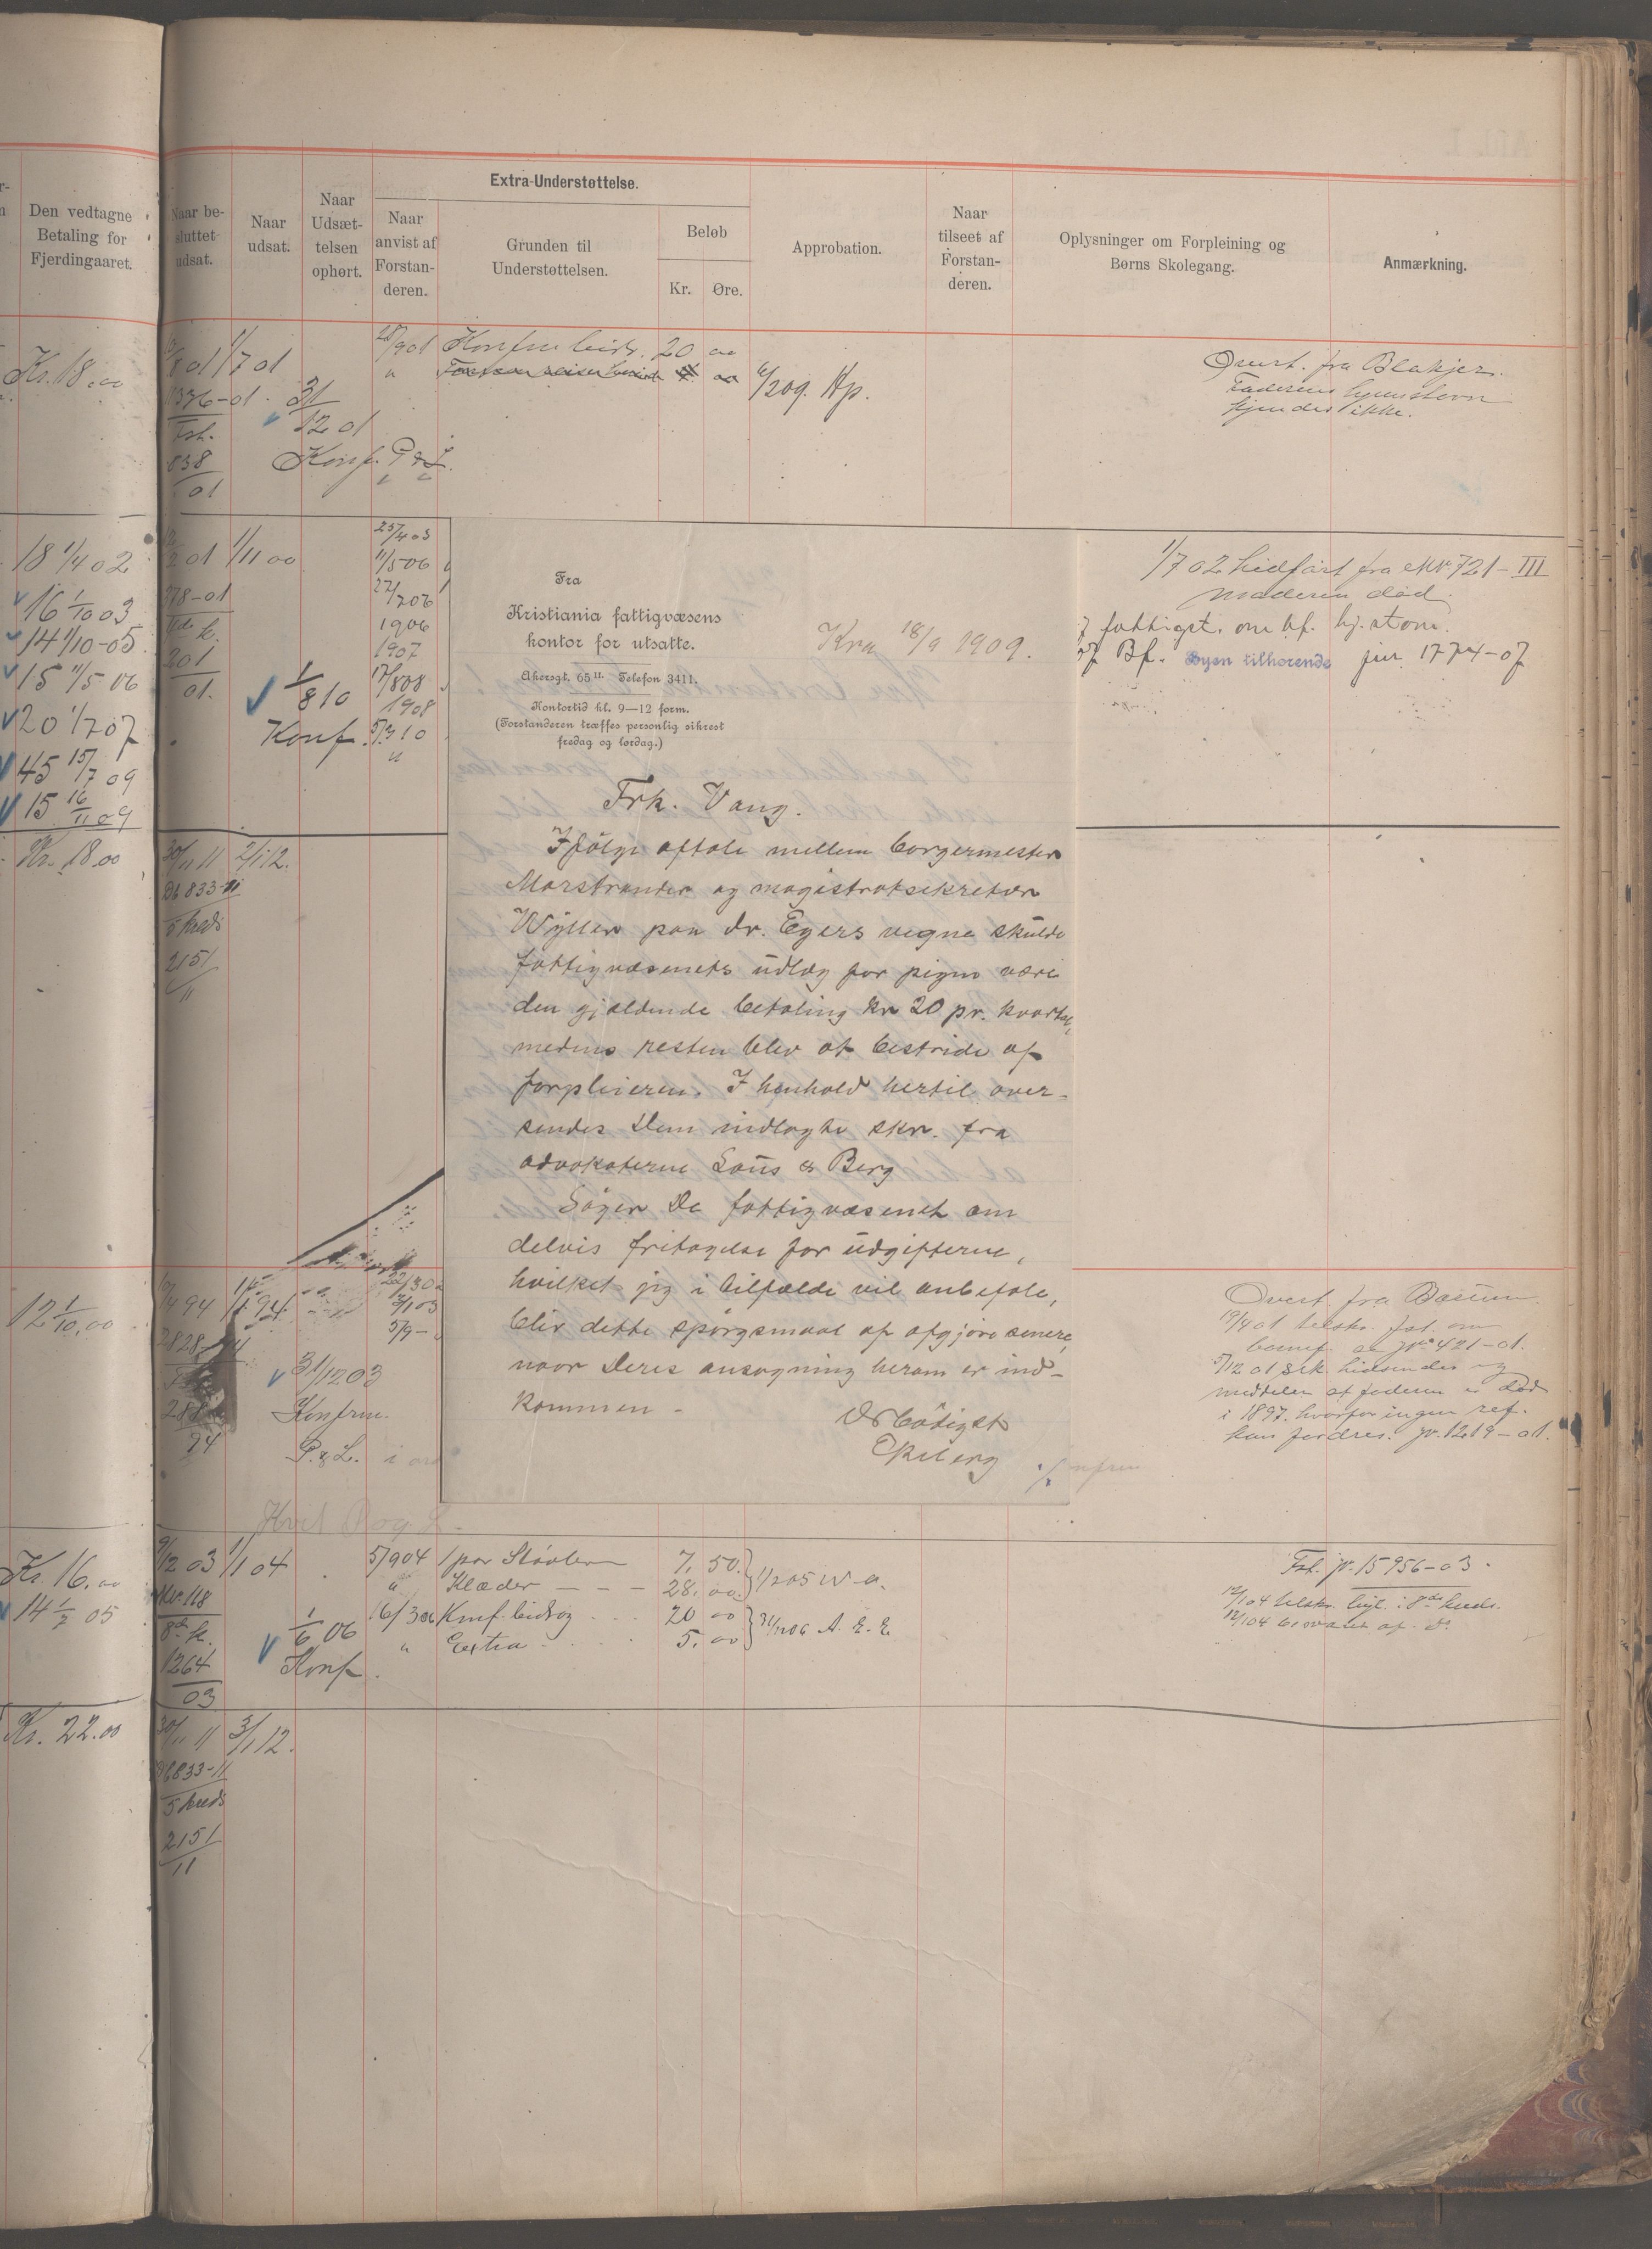 Extra-Understøttelse.
Den vedtagne
Betaling for
Fjerdingaaret.
Naar be-
sluttet
udsat.
Naar
udsat.
Naar
Udsæt-
telsen
ophørt.
Naar
anvist af
Forstan-
deren.
Grunden til
Understøttelsen.
Beløb
Kr.
Øre.
Approbation.
Naar
tilseet af
Forstan-
deren.
Oplysninger om Forpleining og
Børns Skolegang.
Anmærkning.
Kr. 18.00
1/7 01
1376-01.
31/12 01
Fst.
838/01
Konf. P & L.
20 00
6/2 09.
Overt. fra Blakjer.
Faderens
kjendes ikke.
18 1/4 02
16 1/10 03
14 1/10-05
15 11/5 06
20 1/7 07
45 15/7 09
15 16/11 09
1/11 00
378-01
201/01.
1/8 10
Konf.
25/4 03
11/5 06
27/7 06
1906
1907
17/8 08
1908
5/3 10
"
1/7 02 hidført fra Nr. 721-III
moderen død.
fattigst. om bf. hj. stavn.
Bf. Byen tilhørende jur 1774-07
Fra
Kristiania fattigvæsens
kontor for utsatte.
Akersgt. 65 II. Telefon 3411.
Kontortid kl. 9—12 form.
(Forstanderen træffes personlig sikrest
fredag og lørdag.)
Kra 18/9 1909.
Frk. Vang.
Ifølge aftale mellem borgermester
Marstrander og magistratsekretær
Wyller paa dr. Egers vegne skulde
fattigvæsenets udlæg for pigen være
den gjældende betaling kr 20 pr. kvartal,
medens resten blev at bestride af
forpleieren. I henhold hertil over-
sendes Dem indlagte skr. fra
advokaterne Lous & Berg
Søger De fattigvæsenet om
delvis fritagelse for udgifterne,
hvilket jeg i tilfælde vil anbefale,
blir dette spørgsmaal at afgjøre senere,
naar Deres ansøgning herom er ind-
kommen -
Ærbødigst
Kr. 18.00
30/11 11
2/1 12.
Db 833-11
5 kreds
2151/11
12 1/10.00
31/12 03
Konfirm.
P. & L.
Overt. fra Bærum
19/4 01
jr. 421-01.
meddeler at faderen er død
i 1897. hvorfor ingen ref.
kan fordres. jr. 1219-01.
Kr. 16.00
14 1/2 05
9/12 03
1/1 04
Nr. 118
8de k.
1264/03
1/6 06
Konf.
5/9 04 1 par Støvler 7.50.
" Klæder — — — 28.00.
16/3 06 Konf. bidrag 20 00
" Extra 5.00
A. E. E.
Fst. jr. 15956-03.
Kr. 22.00
30/11 11
3/1 12.
Db 833-11
5 kreds
2151/11